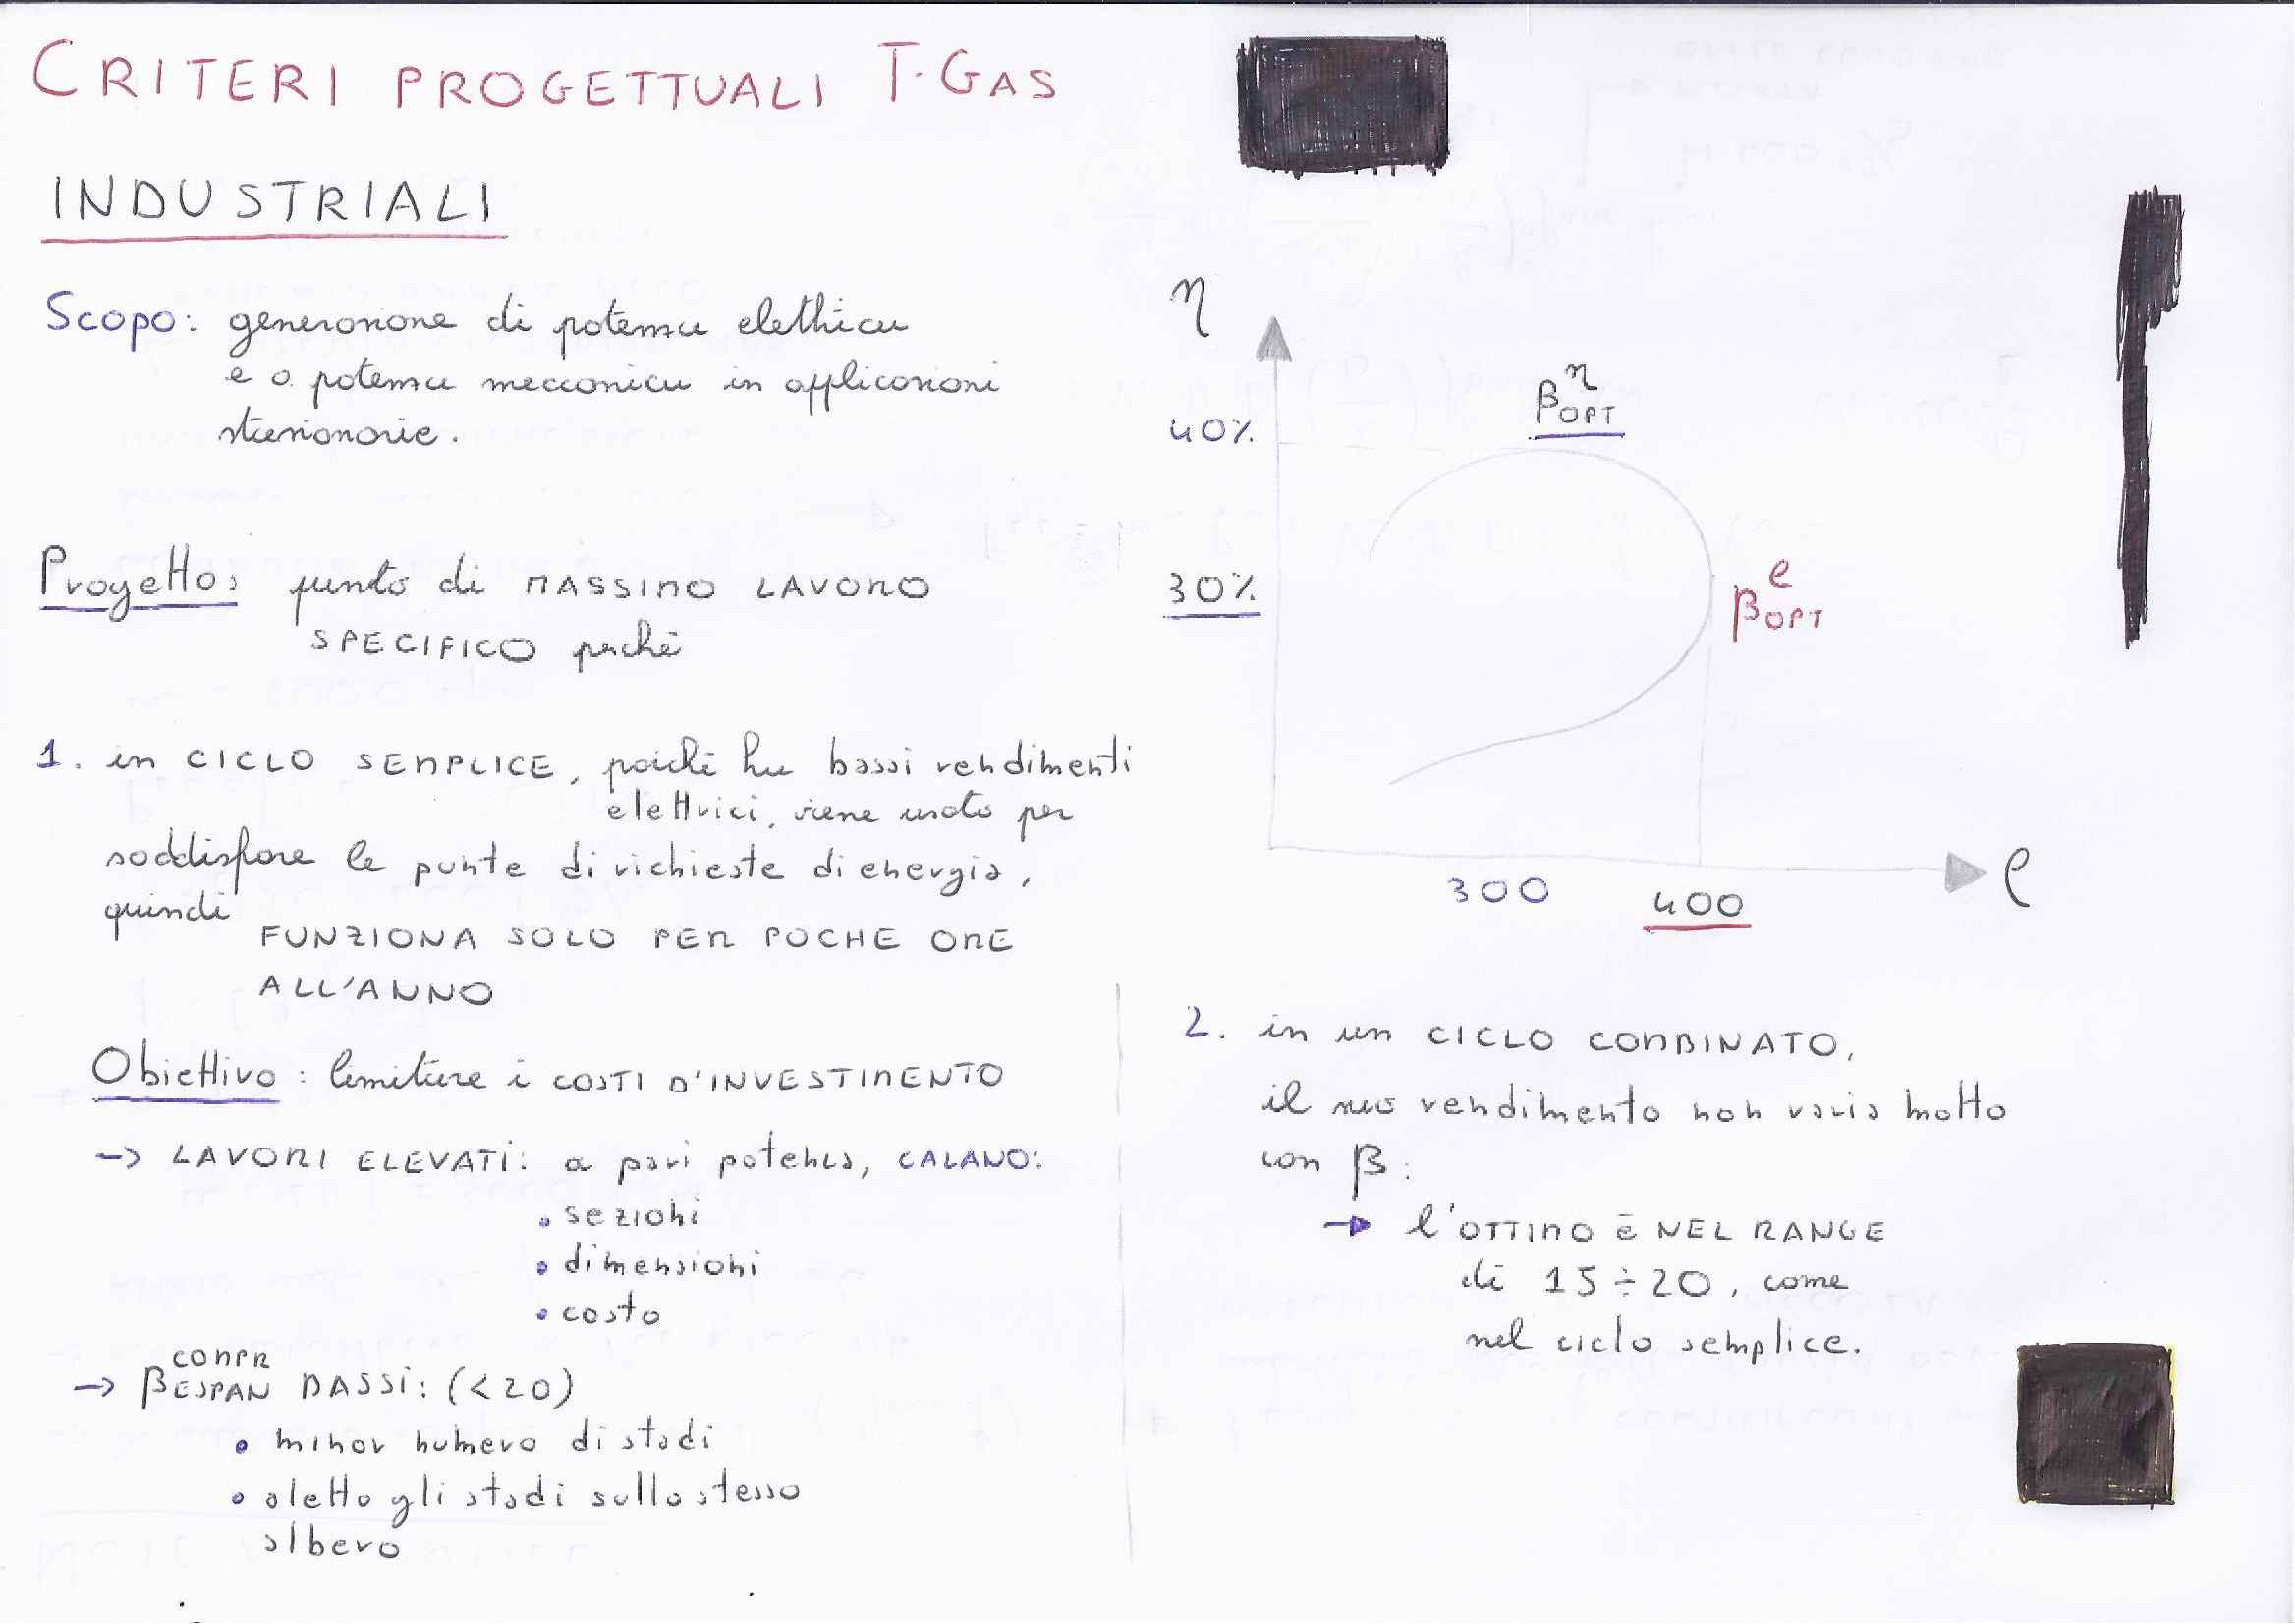 CRITERI PROGETTUALI T.GAS
INDUSTRIALI
Scopo: generazione di potenza elettrica
e o potenza meccanica in applicazioni
stazionarie.
Progetto: punto di MASSIMO LAVORO
SPECIFICO perchè
1. in CICLO SEMPLICE, poichè ha bassi rendimenti
elettrici, viene usato per
soddisfare le punte di richieste di energia,
quindi
FUNZIONA SOLO PER POCHE ORE
ALL'ANNO
Obiettivo: limitare i COSTI D'INVESTIMENTO
→ LAVORI ELEVATI: a pari potenza, CALANO:
• sezioni
• dimensioni
• costo
→ β COMPR ESPAN BASSI: (<20)
• minor numero di stadi
• aletto gli stadi sullo stesso
albero
η
β η OPT
40%
30%
β l OPT
300
400
l
2. in un CICLO COMBINATO,
il suo rendimento non varia molto
con β:
→ l'OTTIMO è NEL RANGE
di 15÷20, come
nel ciclo semplice.